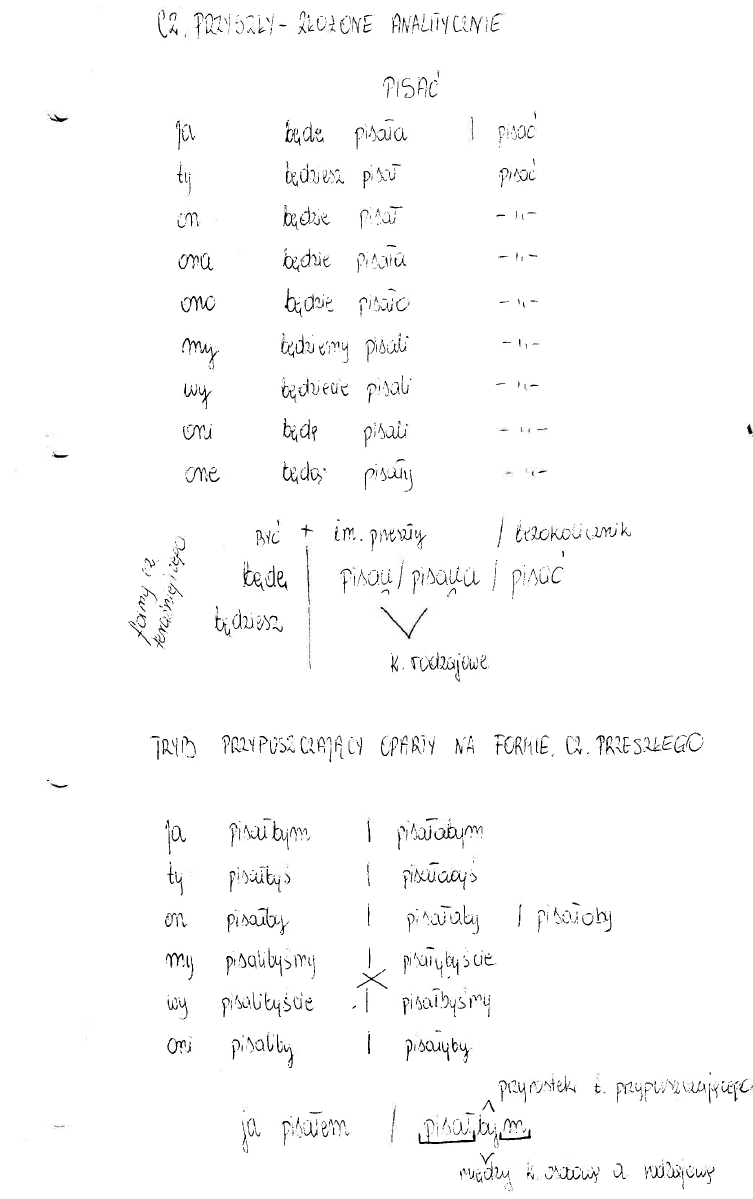 CZ. PRZYSZŁY - ZŁOŻONE ANALITYCZNIE
PISAĆ
ja będę pisała | pisać
ty będziesz pisał pisać
on będzie pisał -"-
ona będzie pisała -"-
ono będzie pisało -"-
my będziemy pisali -"-
wy będziecie pisali -"-
oni będę pisali -"-
one będą pisały -"-
BYĆ + im. przeszły / bezokolicznik
formy cz. teraźniejszego
będę | pisał / pisała / pisać
będziesz
k. rodzajowe
TRYB PRZYPUSZCZAJĄCY OPARTY NA FORMIE CZ. PRZESZŁEGO
ja pisałbym | pisałabym
ty pisałbyś | pisałabyś
on pisałby | pisałaby | pisałoby
my pisalibyśmy | pisałybyście
wy pisalibyście | pisałbyśmy
oni pisaliby | pisałyby
przyrostek t. przypuszczającego
ja pisałem / pisałbym
między k. osobową a rodzajową